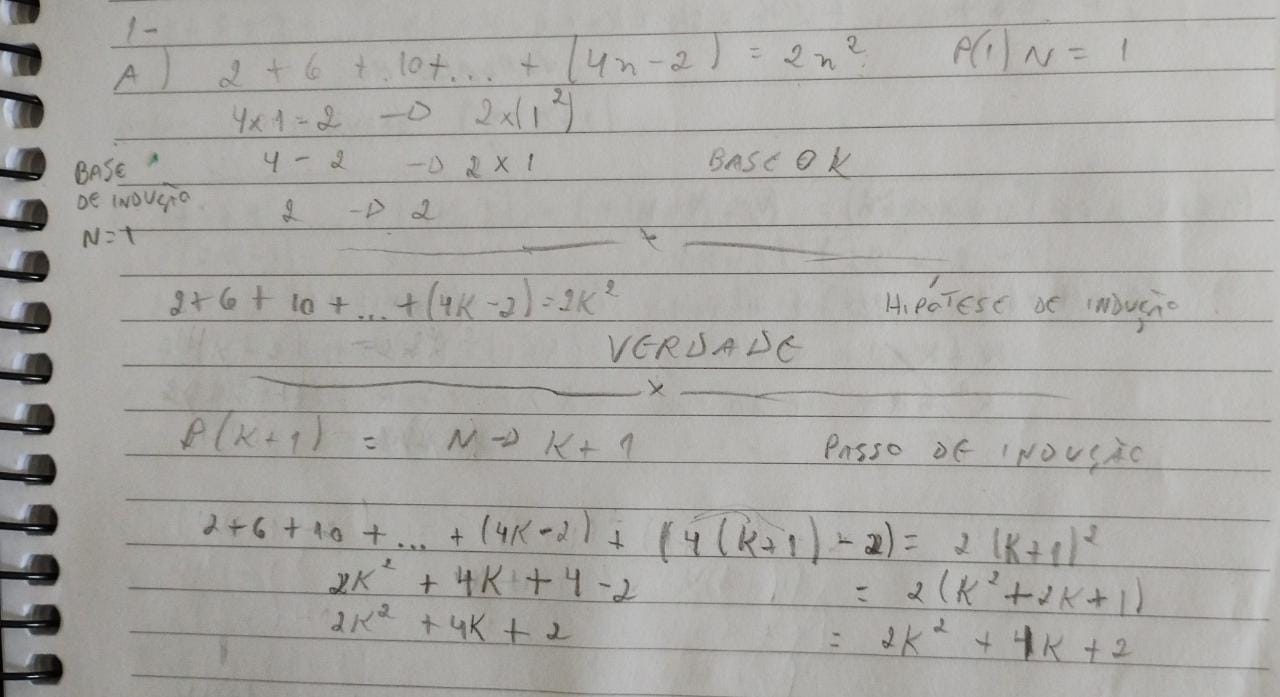 1-
A) 2 + 6 + 10 + ... + (4n - 2) = 2n² P(1) N = 1
4x1-2 → 2x(1²)
BASE 4 - 2 → 2 x 1 BASE OK
DE INDUÇÃO 2 → 2
N=1
x
2+6+10+...+(4K-2)=2K² HIPÓTESE DE INDUÇÃO
VERDADE
x
P(K+1) = N → K+1 PASSO DE INDUÇÃO
2+6+10+...+(4K-2)+(4(K+1)-2)= 2(K+1)²
2K² + 4K + 4 - 2 = 2(K²+2K+1)
2K² + 4K + 2 = 2K² + 4K + 2